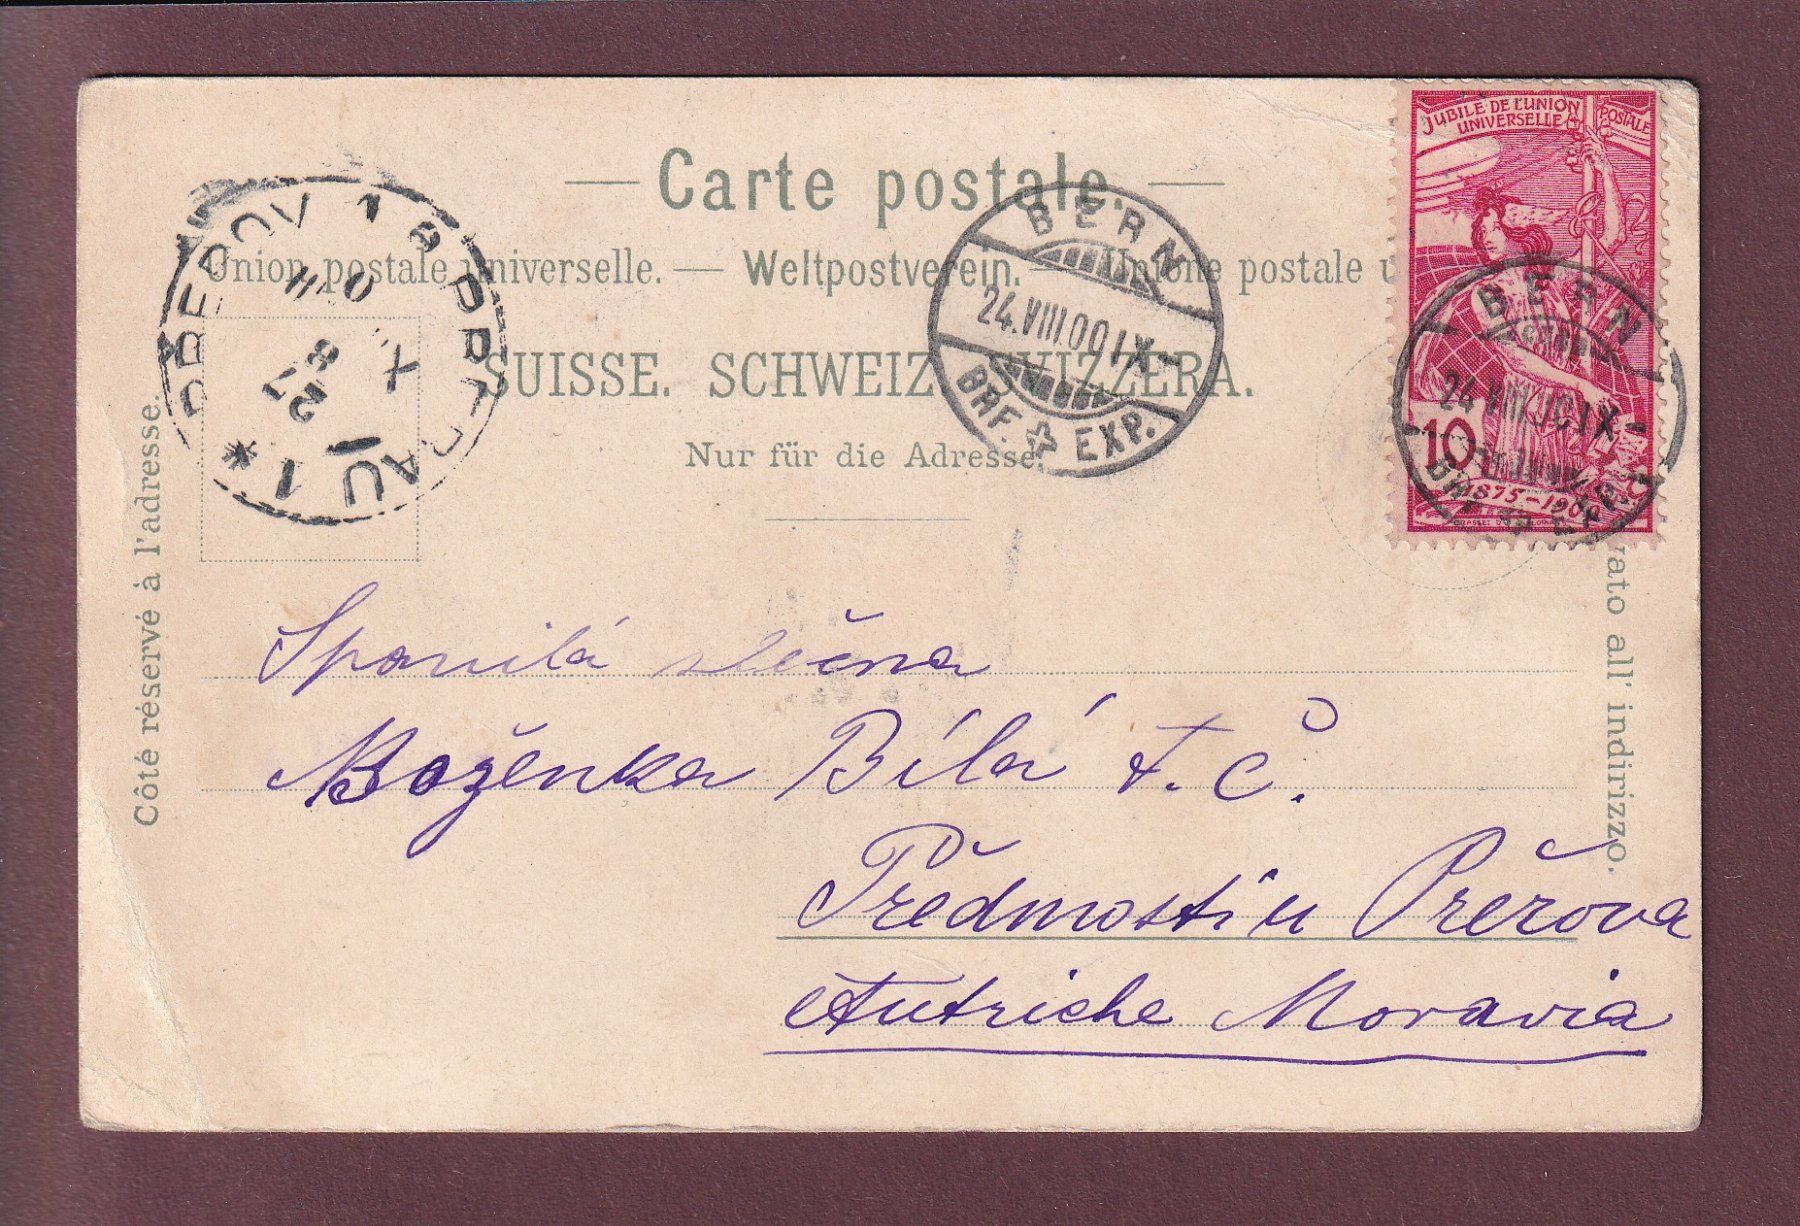 Carte postale.
Union postale universelle. — Weltpostverein. — Unione postale u
SUISSE. SCHWEIZ. SVIZZERA.
Nur für die Adresse.
Côté réservé à l'adresse.
vato all' indirizzo.
JUBILÉ DE L'UNION POSTALE
UNIVERSELLE
10
1875-1900
BERN
24.VIII.00.IX-
BRF. EXP.
BERN
24.VIII.00.IX-
BRF. EXP.
PŘEROV 1 PRERAU 1
27 8
X
Spanilá slečna
Boženka Bílá t. č.
Předmostí u Přerova
Autriche Moravia